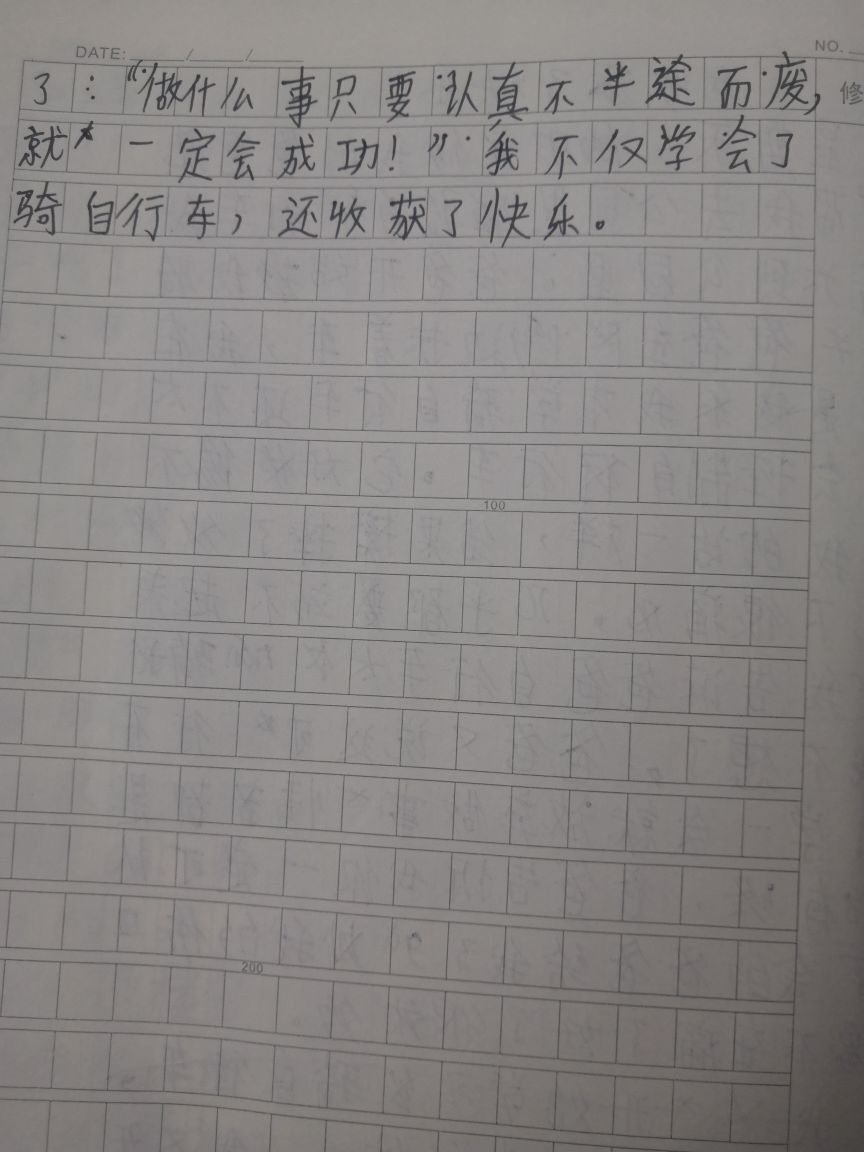 DATE: / /
NO.
了：“做什么事只要认真不半途而废，
修
就一定会成功！”我不仅学会了
骑自行车，还收获了快乐。
100
200